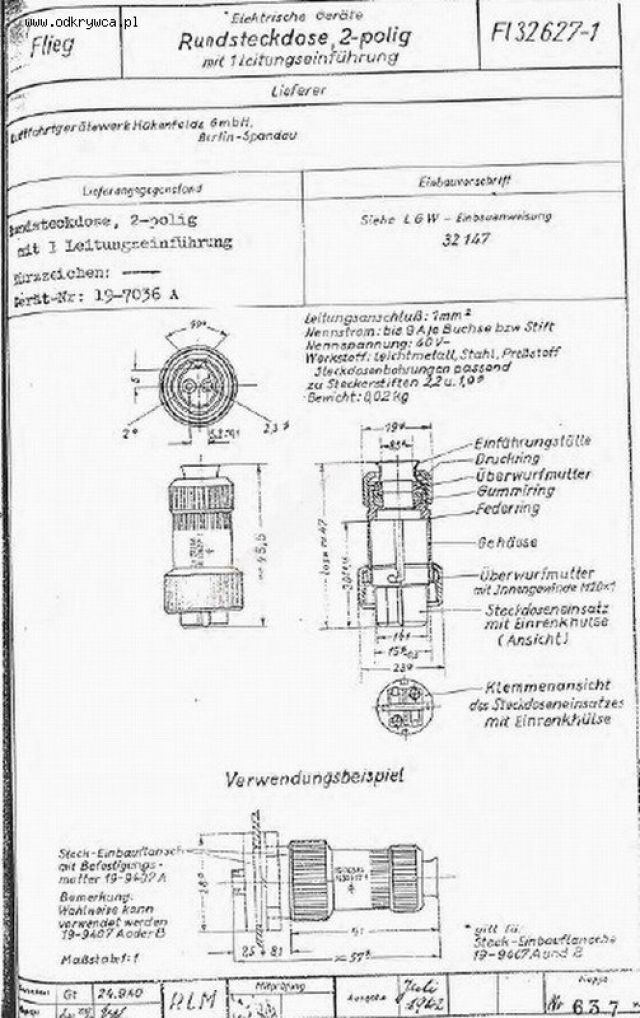 www.odkrywca.pl
Flieg
Elektrische Geräte
Rundsteckdose, 2-polig
mit 1 Leitungseinführung
Fl 32627-1
Lieferer
Luftfahrtgerätewerk Hakenfelde GmbH,
Berlin-Spandau
Lieferungsgegenstand
Einbauvorschrift
Rundsteckdose, 2-polig
mit 1 Leitungseinführung
Kurzzeichen: ——
Gerät-Nr: 19-7036 A
Siehe LGW - Einbauanweisung
32147
Leitungsanschluß: 1mm²
Nennstrom: bis 9 A je Buchse bzw Stift
Nennspannung: 60V-
Werkstoff: Leichtmetall, Stahl, Preßstoff
Steckdosenbohrungen passend
zu Steckerstiften 2,2 u. 1,9⌀
Gewicht: 0,02 kg
2⌀
2,3⌀
19⌀
8,5⌀
Einführungstülle
Druckring
Überwurfmutter
Gummiring
Federring
Gehäuse
Überwurfmutter
mit Innengewinde M20×1
Steckdoseneinsatz
mit Einrenkhülse
(Ansicht)
~45,5
23⌀
Klemmenansicht
des Steckdoseneinsatzes
mit Einrenkhülse
Verwendungsbeispiel
Steck-Einbauflansch
mit Befestigungs-
mutter 19-9407 A
Bemerkung:
Wahlweise kann
verwendet werden
19-9407 A oder B
Maßstab 1:1
18⌀
2,5
8,1
≈57⌀
* gilt für
Steck-Einbauflansche
19-9407 A und B
Gt
24.9.40
RLM
Mitprüfung
Ausgabe
Juli
1942
Gruppe
Nr 637